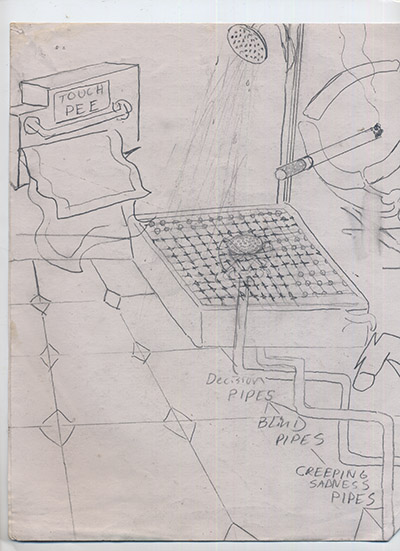 TOUCH
PEE
Decision
PIPES
BLIND
PIPES
CREEPING
SADNESS
PIPES